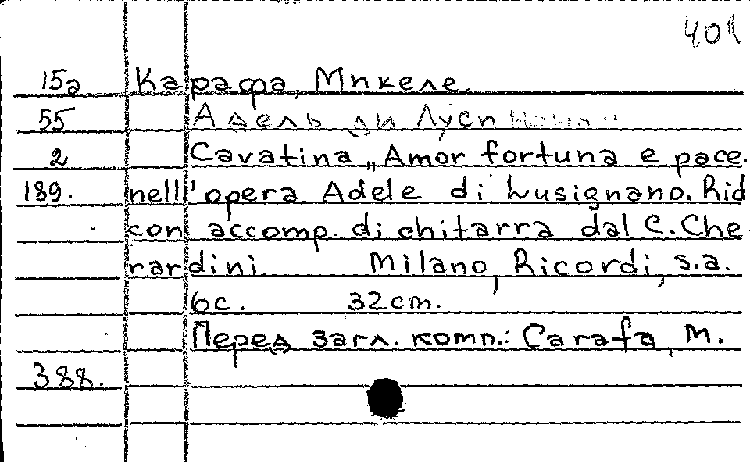 401
15а Карафа, Микеле.
55 Адель ди Лусиньяно
2 Cavatina „Amor fortuna e pace.
189. nell'opera Adele di Lusignano. Rid
con accomp. di chitarra dal C. Che
rardini Milano, Ricordi, s.a.
6с. 32cm.
Перед загл. комп.: Carafa, M.
388.